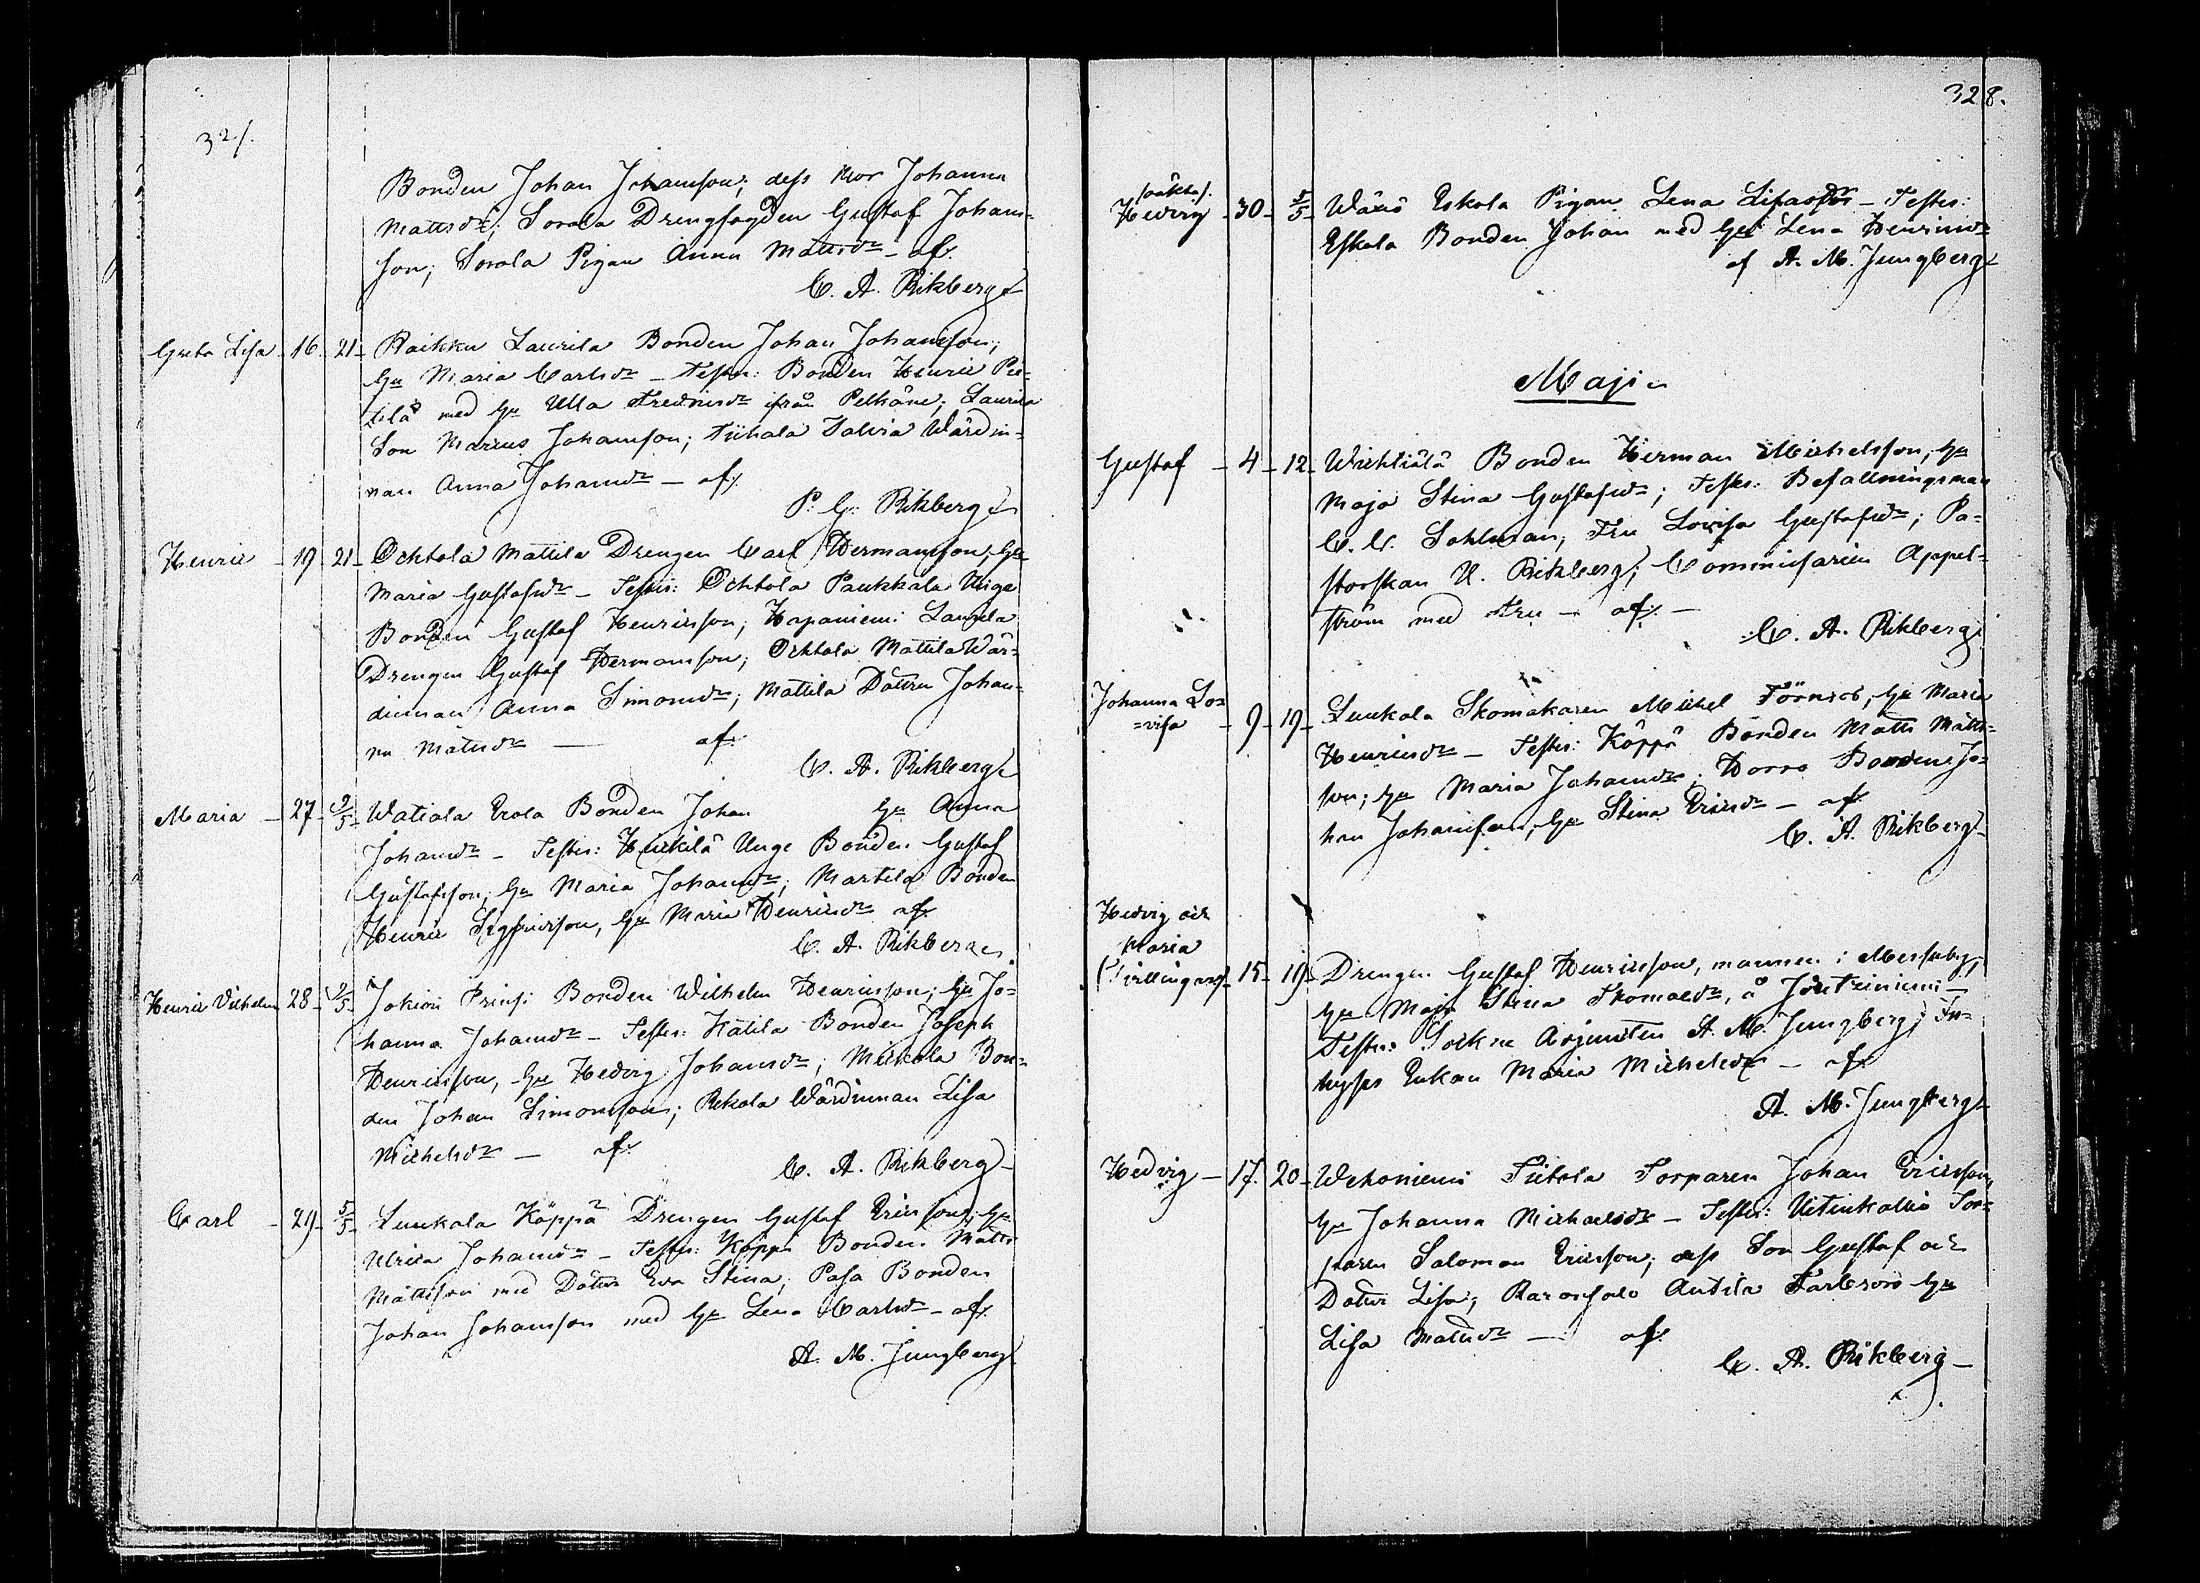 327.
Bonden Johan Johansson; dess Mor Johanna
Mattsdr; Sorola Drengfogden Gustaf Johans-
son; Sorola Pigan Anna Mattsdr - af.
C. A. Rikberg
Greta Lisa - 16 - 21 - Raikku Laurila Bonden Johan Johansson;
Hu Maria Carlsdr - Testes: Bonden Henric Pie-
tilä med Hu Ulla Fredricsdr från Pelkäne; Laurila
Son Marcus Johansson; Wärdin-
nan Anna Johansdr - af.
P. G. Rikberg
Henric - 19 - 21 - Ochtola Mattila Drengen Carl Hermansson; Hu
Maria Gustafsdr - Testes: Ochtola Paukkala Unge
Bonden Gustaf Henricsson; Hapaniemi Laurila
Drengen Gustaf Hermansson; Ochtola Mattila Wär-
dinnan Anna Simonsdr; Mattila Dottren Johan-
na Matsdr - af.
C. A. Rikberg
Maria - 27 - 2/5 - Watiala Erola Bonden Johan Hu Anna
Johansdr - Testes: Heickilä Unge Bonden Gustaf
Gustafsson, Hu Maria Johansdr; Martila Bonden
Henric Sigfridsson, Hu Maria Henricsdr af.
C. A. Rikberg
Henric Vilhelm 28 - 2/5 - Jokioi Prinsi Bonden Wilhelm Henricsson; Hu Jo-
hanna Johansdr - Testes: Kätilä Bonden Joseph
Henricsson, Hu Hedvig Johansdr; Mickola Bon-
den Johan Simonsson; Rekola Wärdinnan Lisa
Michelsdr - af.
C. A. Rikberg
Carl - 29 - 5/5 - Luukala Köppä Drengen Gustaf Ericsson; Hu
Ulrica Johansdr - Testes: Köppä Bonden Matts
Mattsson med Dotter Eva Stina; Pasa Bonden
Johan Johansson med Hu Lena Carlsdr - af.
A. M. Jungberg
328.
(oäkta).
Hedvig - 30 - 5/5 - Wääxö Eskola Pigan Lena Lisasdr - Testes:
Eskola Bonden Johan med Hu Lena Henricsdr
af A. M. Jungberg
Maji
Gustaf - 4 - 12 - Bonden Herman Michelsson, Hu
Maja Stina Gustafsdr; Testes: Befallningsman
C. C. Sohlman, Fru Lovisa Gustafsdr; Pa-
storskan U. Rikberg; Commissarien Appel-
ström med Fru - af. -
C. A. Rikberg
Johanna Lo-
=visa - 9 - 19 - Luukala Skomakaren Michel Törnrot, Hu Maria
Henricsdr - Testes: Köppä Bonden Matts Matts-
son; Hu Maria Johansdr; Horro Bonden Jo-
han Johansson, Hu Stina Ericsdr - af.
C. A. Rikberg
Hedvig och
Maria
(Tvillingar) - 15 - 19 - Drengen Gustaf Henricsson, mannen i Messuby,
Hu Maja Stina Thomasdr, å
Testes: Sockne Adjuncten A. M. Jungberg; In-
hyses Enkan Maria Michelsdr - af.
A. M. Jungberg
Hedvig - 17. 20 - Wehoniemi Tiitola Torparen Johan Ericsson,
Hu Johanna Michaelsdr - Testes: Vitinkallio Tor-
paren Salomon Ericsson; dess Son Gustaf och
Dotter Lisa; Antila Hu
Lisa Matsdr - af.
C. A. Rikberg -